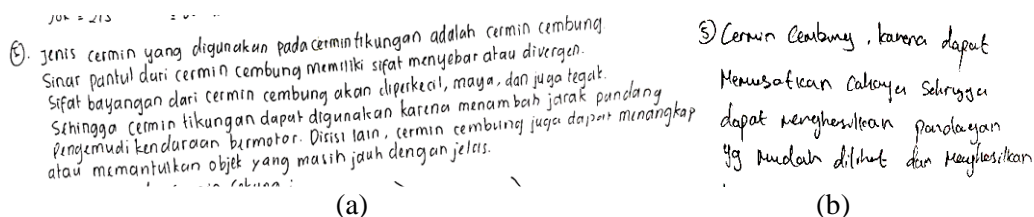 ⑤. Jenis cermin yang digunakan pada cermin tikungan adalah cermin cembung.
Sinar pantul dari cermin cembung memiliki sifat menyebar atau divergen.
Sifat bayangan dari cermin cembung akan diperkecil, maya, dan juga tegak.
Sehingga cermin tikungan dapat digunakan karena menambah jarak pandang
Pengemudi kendaraan bermotor. Disisi lain, cermin cembung juga dapat menangkap
atau memantulkan objek yang masih jauh dengan jelas.
(a)
⑤ Cermin Cembung, karena dapat
Memusatkan Cahaya Sehingga
dapat menghasilkan pandangan
yg mudah dilihat dan Menghasilkan
(b)